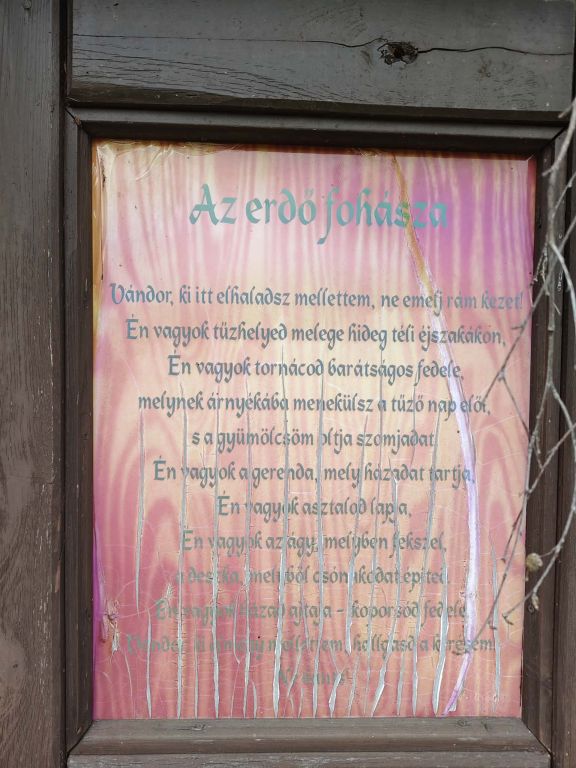 Az erdő fohásza
Vándor, ki itt elhaladsz mellettem, ne emelj rám kezet!
Én vagyok tűzhelyed melege hideg téli éjszakákon,
Én vagyok tornácod barátságos fedele,
melynek árnyékába menekülsz a tűző nap elől,
s a gyümölcsöm oltja szomjadat.
Én vagyok a gerenda, mely házadat tartja,
Én vagyok asztalod lapja,
Én vagyok az ágy, melyben fekszel,
a deszka, melyből csónakodat építed.
Én vagyok házad ajtaja - koporsód fedele.
Vándor, ki elmégy mellettem, hallgasd a kérésem!
Ne bánts!